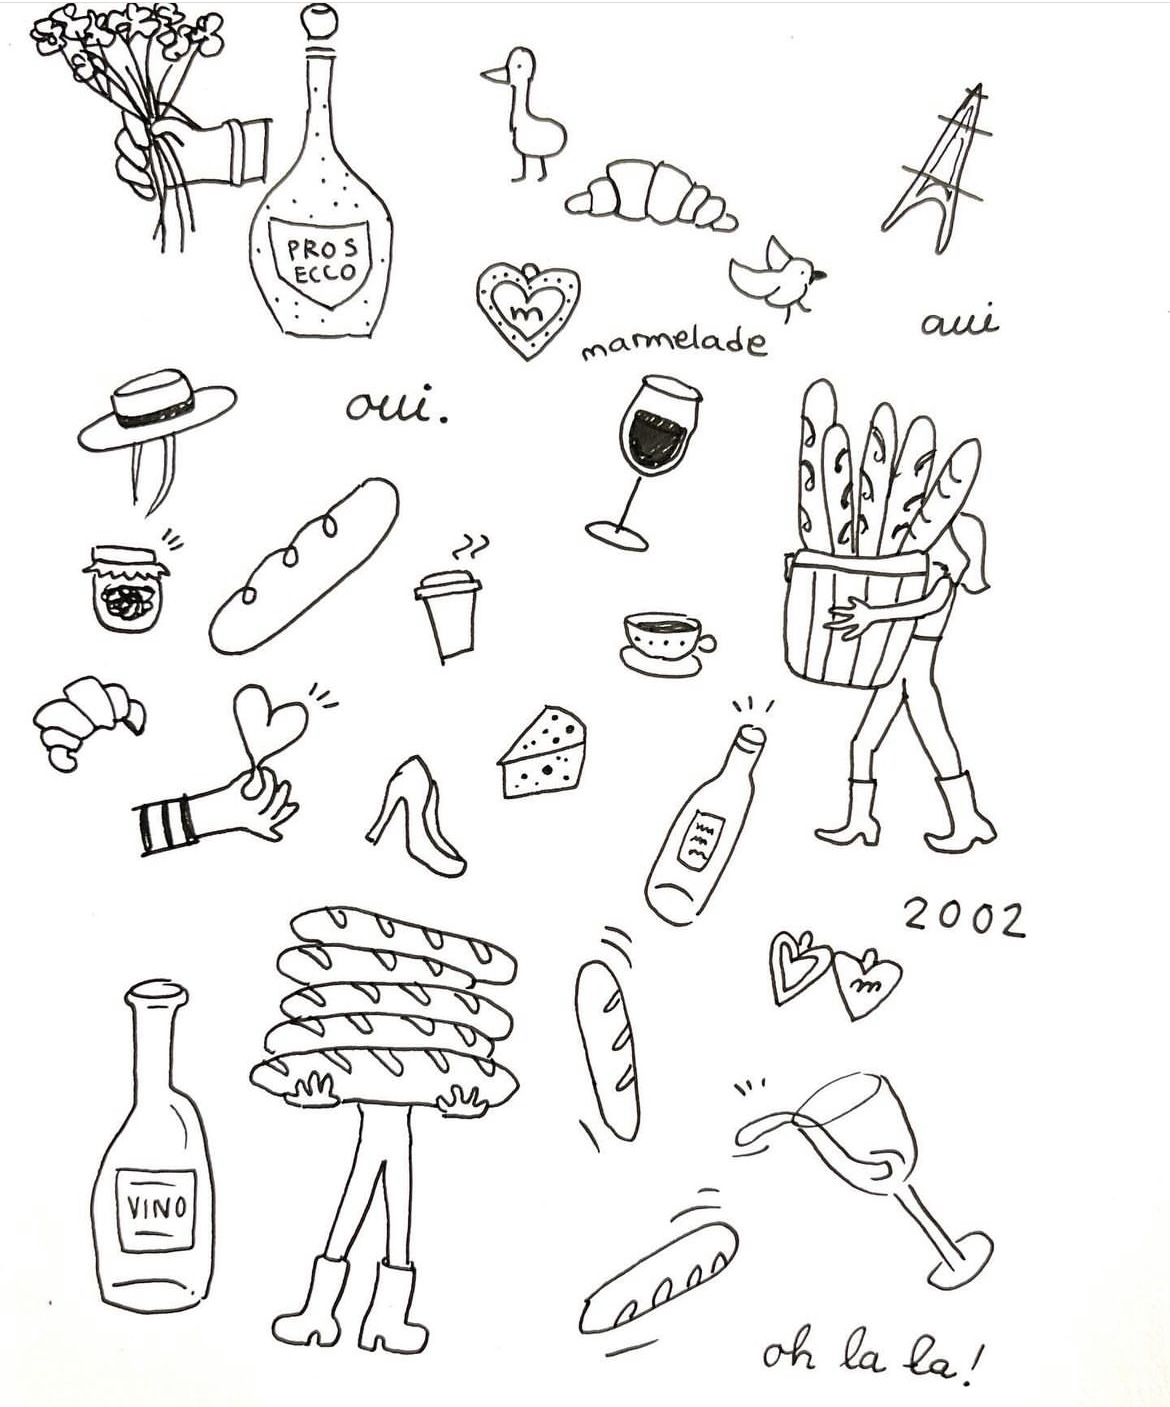 PROS
ECCO
m
marmelade
aui
oui.
2002
m
VINO
oh la la!